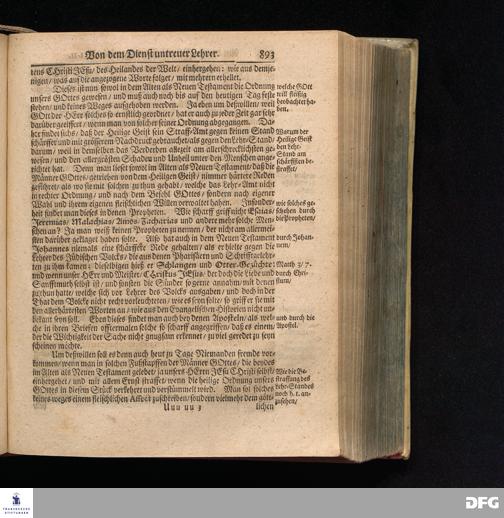 Von dem Dienst untreuer Lehrer. 893
rens CHristi JEsu/ des Heilandes der Welt/ einhergehen: wie aus demje-
nigen/ was auf die angezogene Worte folget/ mit mehrern erhellet.
Dieses ist nun sowol in dem Alten als Neuen Testament die Ordnung
unsers GOttes gewesen/ und muß auch noch bis auf den heutigen Tag feste
stehen/ und keines Weges aufgehoben werden. Ja eben um deswillen/ weil
GOtt der HErr solches so ernstlich geordnet/ hat er auch zu jeder Zeit gar sehr
darüber geeiffert/ wenn man von solcher seiner Ordnung abgegangen. Da-
her findet sichs/ daß der Heilige Geist sein Straff-Amt gegen keinen Stand
schärffer und mit grösserm Nachdruck gebrauchet/ als gegen den Lehr-Stand/
darum/ weil in demselben das Verderben allezeit am allerschrecklichsten ge-
wesen/ und den allergrösten Schaden und Unheil unter den Menschen ange-
richtet hat. Denn man lieset sowol im Alten als Neuen Testament/ daß die
Männer GOttes/ getrieben von dem Heiligen Geist/ nimmer härtere Reden
geführet/ als wo sie mit solchen zu thun gehabt/ welche das Lehr-Amt nicht
in rechter Ordnung/ und nach dem Befehl GOttes/ sondern nach eigener
Wahl und ihrem eigenen fleischlichen Willen verwaltet haben. Insonder-
heit findet man dieses in denen Propheten. Wie scharff greiff nicht Esaias/
Jeremias/ Malachias/ Amos/ Zacharias und andere mehr solche Men-
schen an? Ja man weiß keinen Propheten zu nennen/ der nicht am allermei-
sten darüber geklaget haben solte. Also hat auch in dem Neuen Testament
Johannes niemals eine schärffere Rede gehalten/ als da er gegen die
Lehrer des Jüdischen Volcks/ die aus denen Pharisäern und Schriftgelehr-
ten zu ihm kamen: dieselbigen hieß er Schlangen und Otter-Gezüchte:
und wenn unser HErr und Meister/ CHristus JEsus/ der doch die Liebe und
Sanfftmuth selbst ist/ und sonsten die Sünder so gerne annahm/ mit denen
zu thun hatte/ welche sich vor Lehrer des Volcks ausgaben/ und doch in der
That dem Volcke nicht recht vorleuchteten/ wie es seyn solte/ so griff er sie mit
den allerhärtesten Worten an/ wie aus den Evangelischen Historien nicht un-
bekant seyn soll. Eben dieses findet man auch bey denen Aposteln/ als wel-
che in ihren Briefen offtermalen solche so scharff angegriffen/ daß es einem/
der die Wichtigkeit der Sache nicht gnugsam erkennet/ zu viel geredet zu seyn
scheinen möchte.
Um deßwillen soll es denn auch heut zu Tage Niemanden fremde vor-
kommen/ wenn man in solchen Fußstapffen der Männer GOttes/ die beydes
im Alten als Neuen Testament gelebet/ ja unsers HErrn JEsu CHristi selbst/
einhergehet/ und mit allem Ernst straffet/ wenn die heilige Ordnung unsers
GOttes in diesem Stück verkehret und verstümmelt wird. Man soll solches
keines weges einem fleischlichen Affect zuschreiben/ sondern vielmehr dem gött-
Uuu uu 3 lichen
welche GOtt
will fleissig
beobachtet ha-
ben.
Warum der
Heilige Geist
den Lehr-
Stand am
schärffsten be-
straffet/
wie solches ge-
schehen durch
die Propheten/
durch Johan-
nem/
Matth 3/ 7.
durch Chri-
stum/
und durch die
Apostel.
Wie die Be-
straffung des
Lehr-Standes
noch h. t. an-
zusehen/
FRANCKESCHE
STIFTUNGEN
DFG